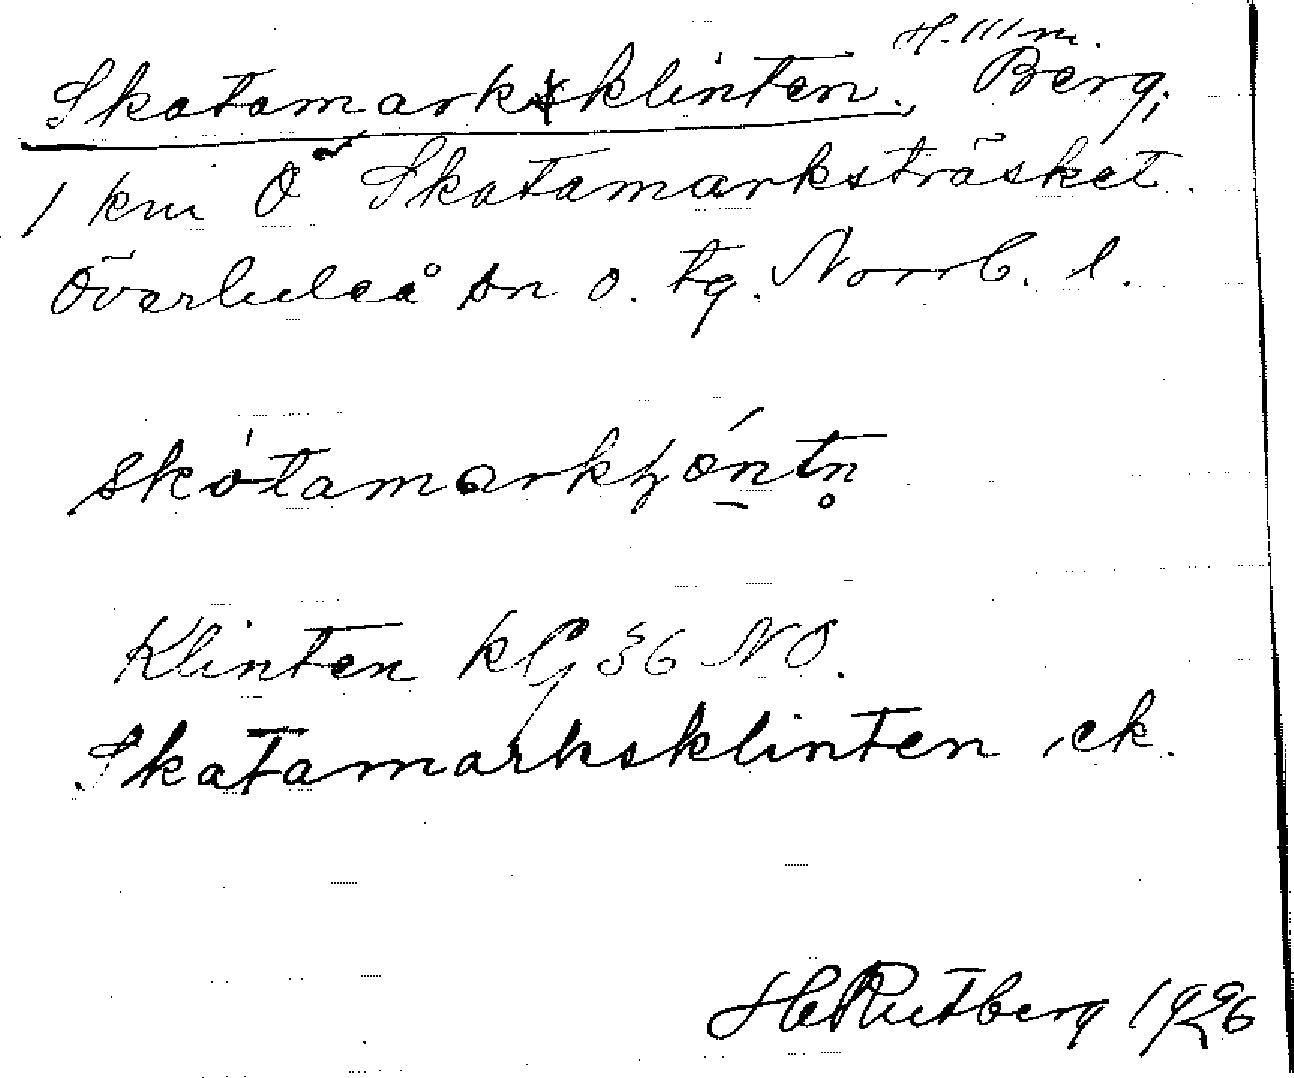 H. 111 m.
Skatamarksklinten, Berg,
1 km Ö Skatamarksträsket
Överluleå sn o. tg. Norrb. l.
Klinten kG 36 NO.
Skatamarksklinten ek.
H Rutberg 1926